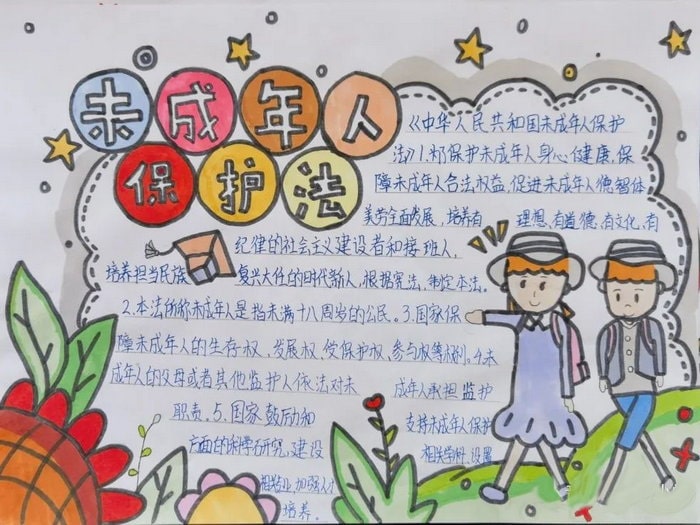 未成年人
保护法
《中华人民共和国未成年人保护
法》1.为了保护未成年人身心健康,保
障未成年人合法权益,促进未成年人德智体
美劳全面发展,培养有 理想、有道德、有文化、有
纪律的社会主义建设者和接班人,
培养担当民族 复兴大任的时代新人,根据宪法,制定本法。
2.本法所称未成年人是指未满十八周岁的公民。3.国家保
障未成年人的生存权、发展权、受保护权、参与权等权利。4.未
成年人的父母或者其他监护人依法对未 成年人承担监护
职责。5.国家鼓励和 支持未成年人保护
方面的科学研究,建设 相关学科、设置
相关专业,加强人才
培养。